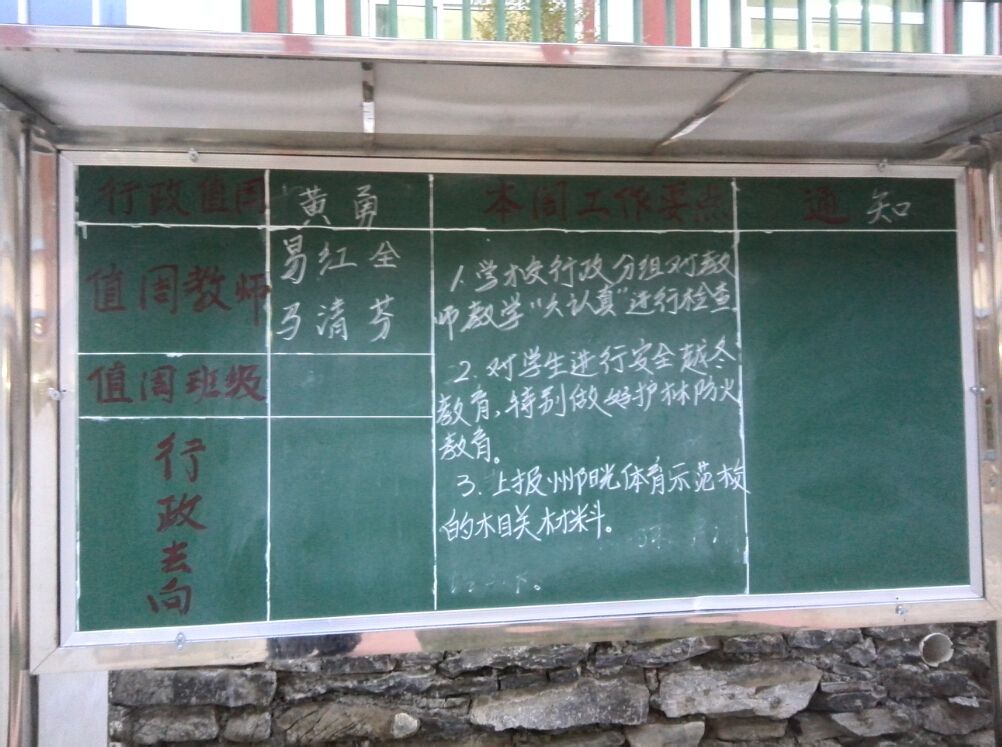 行政值周 黄勇
值周教师 易红全
马清芬
值周班级
行政去向
本周工作要点
1.学校行政分组对教
师教学“六认真”进行检查.
2.对学生进行安全越冬
教育,特别做好护林防火
教育。
3.上报州阳光体育示范校
的相关材料。
通知